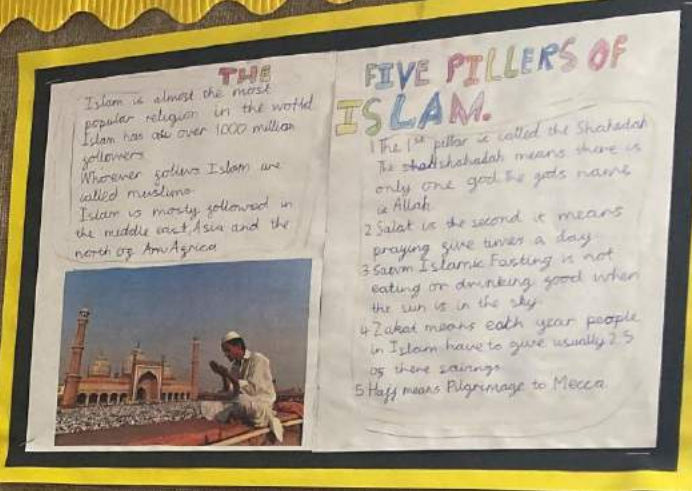 THE
Islam is almost the most
popular religion in the world
Islam has over 1000 million
gollowers
Whoever gollows Islam are
called muslims.
Islam is mosty gollowed in
the middle east, Asia and the
north og Agrica
FIVE PILLERS OF
ISLAM.
1 The 1st pillar is called the Shahadah
The shahadah means there is
only one god the gods name
is Allah
2 Salat is the second it means
praying give times a day
3 Sawm Islamic Fasting is not
eating or drinking good when
the sun is in the sky.
4 Zakat means each year people
in Islam have to give usually 2.5
og there savings
5 Hajj means Pilgrimage to Mecca.